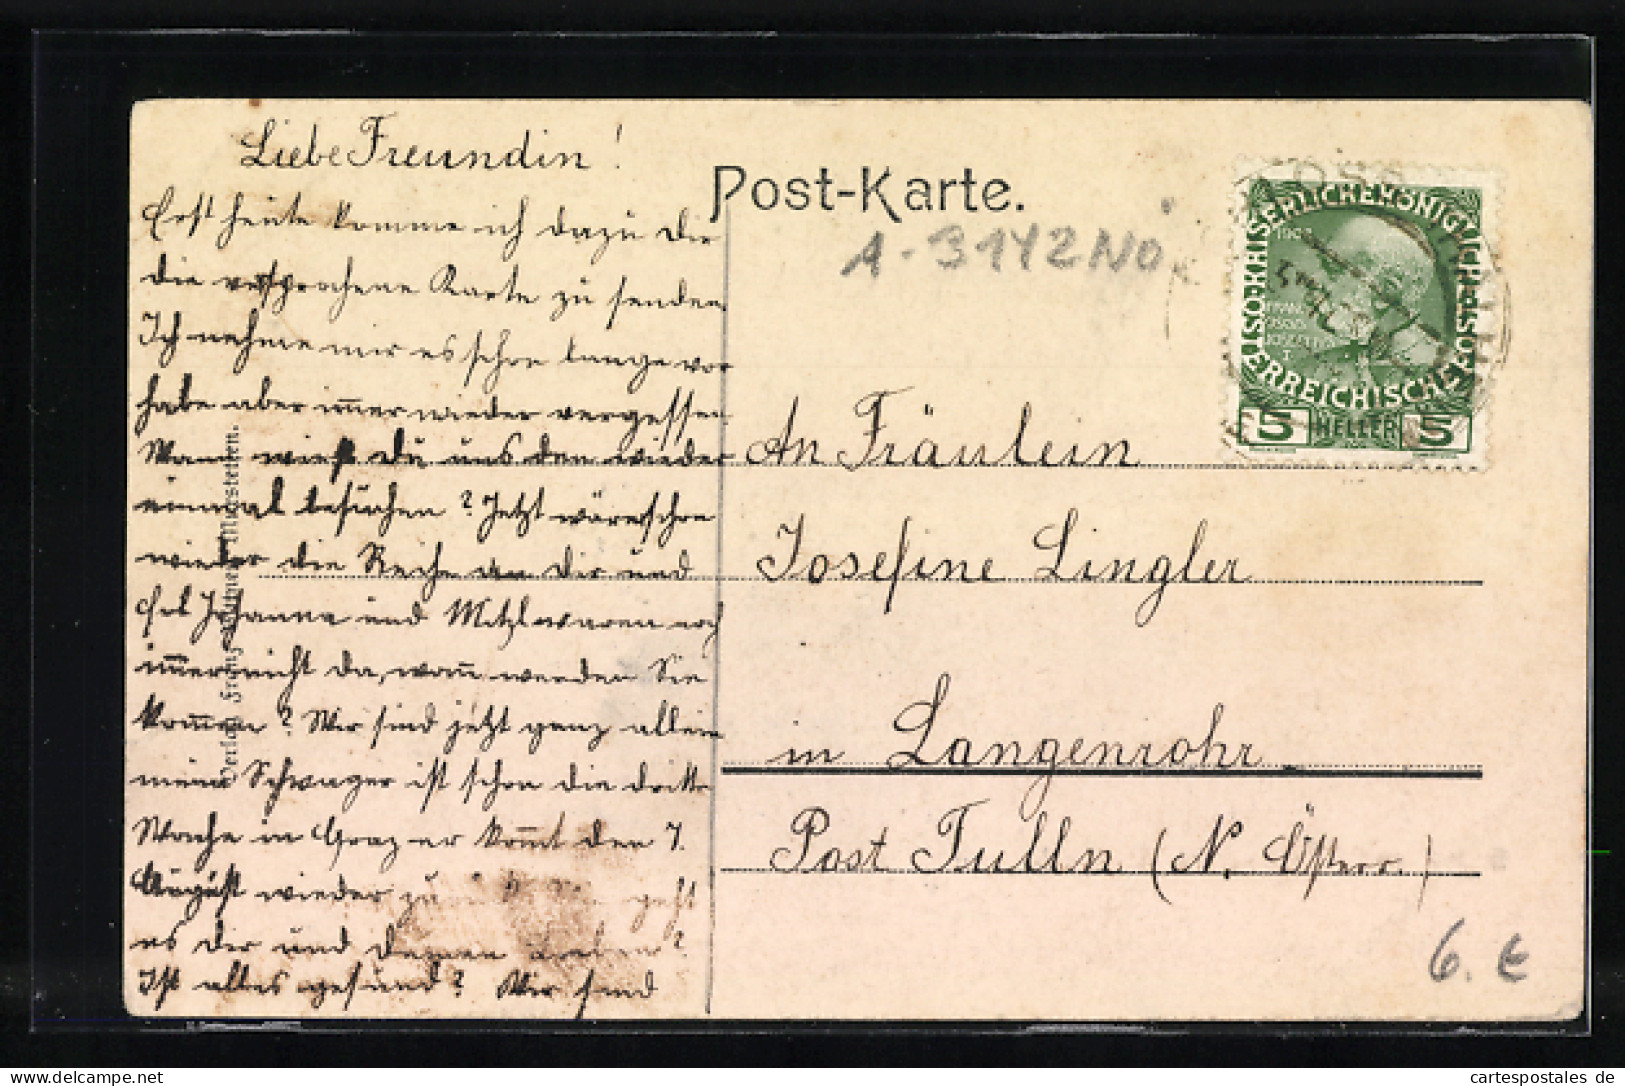 Liebe Freundin!
Erst heute komme ich dazu Dir
die versprochene Karte zu senden
Ich nehme mir es schon lange vor
habe aber immer wieder vergessen.
Wann wirst Du uns den wieder
einmal besuchen? Jetzt wäre schon
wieder die Reihe an Dir und
Frl Johanna und Mitzl waren noch
immer nicht da, wann werden Sie
kommen? Wir sind jetzt ganz allein
mein Schwager ist schon die dritte
Woche in Graz er kommt den 7.
August wieder geht
es Dir und Deinen Lieben?
Ist alles gesund? Wir sind
Verlag Franz Miestethen.
Post-Karte.
A-3142NÖ
KAISERLICHEKÖNIGLICHE
ÖSTERREICHISCHE POST
1908
FRANCISCUS
JOSEPHUS
I
5 HELLER 5
An Fräulein
Josefine Lingler
in Langenrohr
Post Tulln (N. Österr.)
6. €
the-postcard-shop
cartespostales de